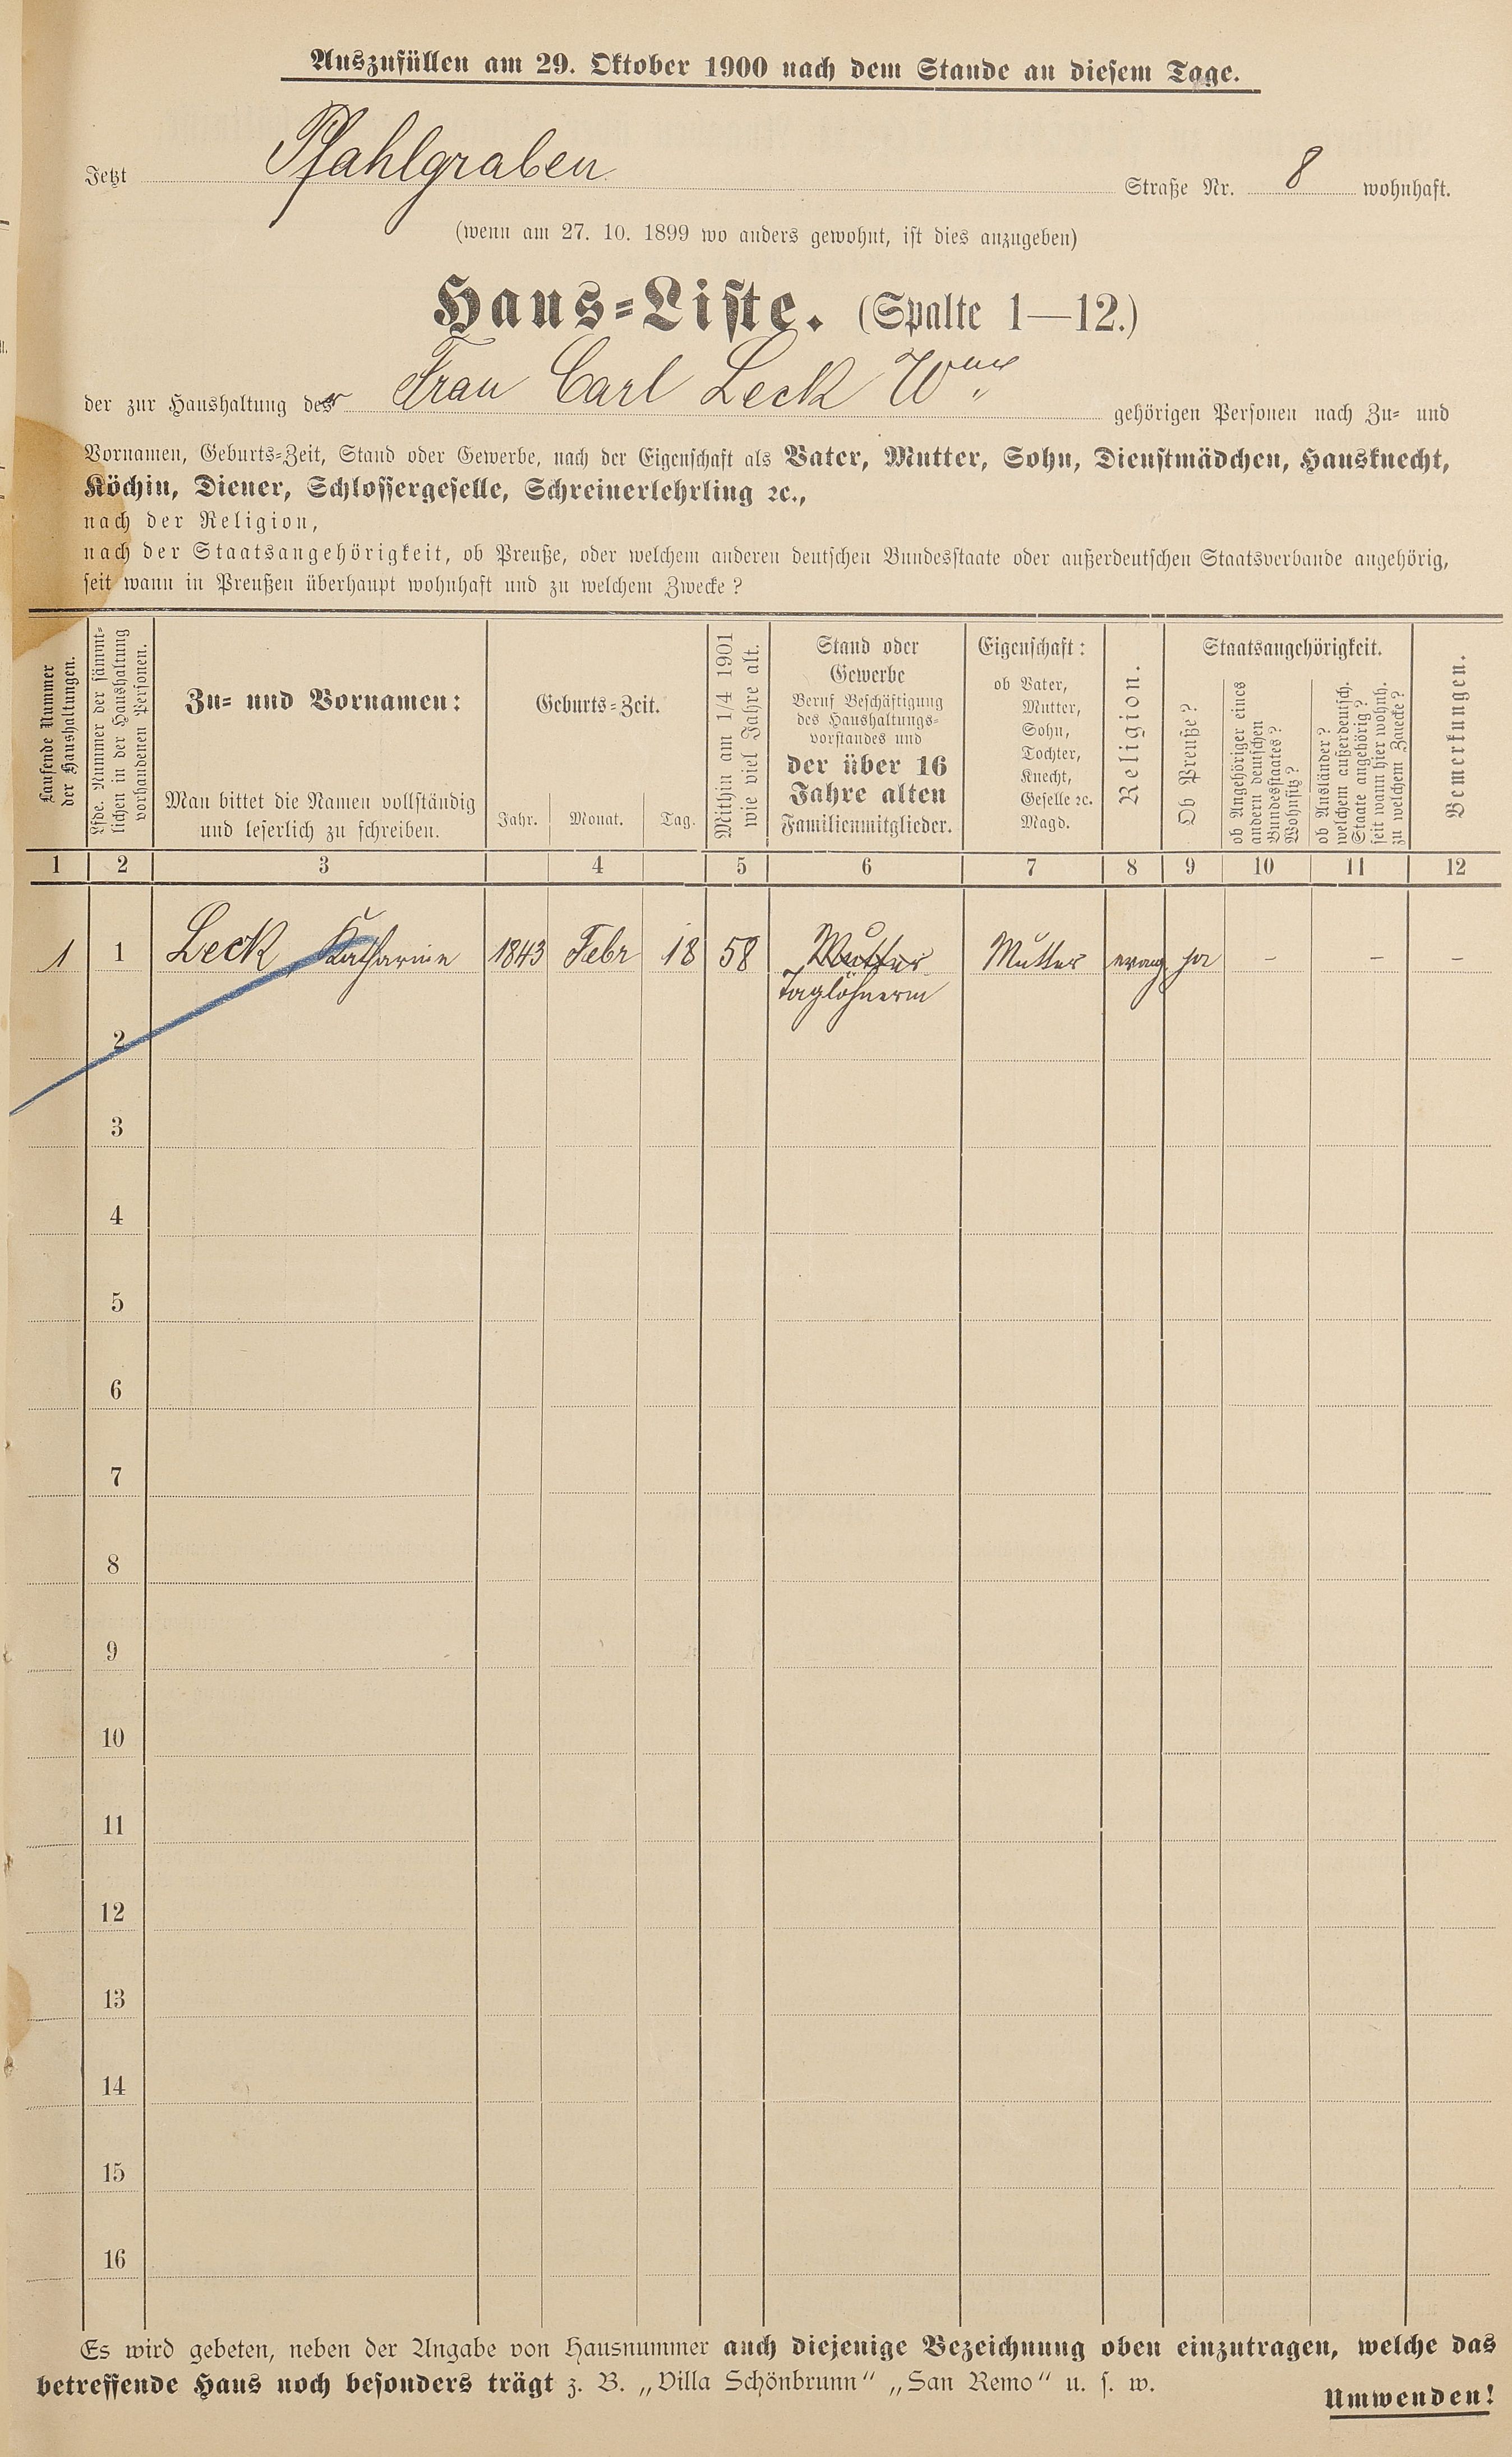 Auszufüllen am 29. Oktober 1900 nach dem Stande an diesem Tage.
Jetzt Pfahlgraben Straße Nr. 8 wohnhaft.
(wenn am 27. 10. 1899 wo anders gewohnt, ist dies anzugeben)
Haus-Liste. (Spalte 1—12.)
der zur Haushaltung der Frau Carl Leck Wwe gehörigen Personen nach Zu- und
Vornamen, Geburts-Zeit, Stand oder Gewerbe, nach der Eigenschaft als Vater, Mutter, Sohn, Dienstmädchen, Hausknecht,
Köchin, Diener, Schlossergeselle, Schreinerlehrling ꝛc.,
nach der Religion,
nach der Staatsangehörigkeit, ob Preuße, oder welchem anderen deutschen Bundesstaate oder außerdeutschen Staatsverbande angehörig,
seit wann in Preußen überhaupt wohnhaft und zu welchem Zwecke?
Laufende Nummer
der Haushaltungen.
Lfde. Nummer der sämmt-
lichen in der Haushaltung
vorhandenen Personen.
Zu- und Vornamen:
Man bittet die Namen vollständig
und leserlich zu schreiben.
Geburts-Zeit.
Jahr. Monat. Tag.
Mithin am 1/4 1901
wie viel Jahre alt.
Stand oder
Gewerbe
Beruf Beschäftigung
des Haushaltungs-
vorstandes und
der über 16
Jahre alten
Familienmitglieder.
Eigenschaft:
ob Vater,
Mutter,
Sohn,
Tochter,
Knecht,
Geselle ꝛc.
Magd.
Religion.
Staatsangehörigkeit.
Ob Preuße?
ob Angehöriger eines
andern deutschen
Bundesstaates?
Wohnsitz?
ob Ausländer?
welchem außerdeutsch.
Staate angehörig?
seit wann hier wohnh.
zu welchem Zwecke?
Bemerkungen.
1 2 3 4 5 6 7 8 9 10 11 12
1 1 Leck, Katharine 1843 Febr 18 58 Mutter Mutter evang ja – – –
Taglöhnerin
2
3
4
5
6
7
8
9
10
11
12
13
14
15
16
Es wird gebeten, neben der Angabe von Hausnummer auch diejenige Bezeichnung oben einzutragen, welche das
betreffende Haus noch besonders trägt z. B. „Villa Schönbrunn“ „San Remo“ u. s. w.
Umwenden!